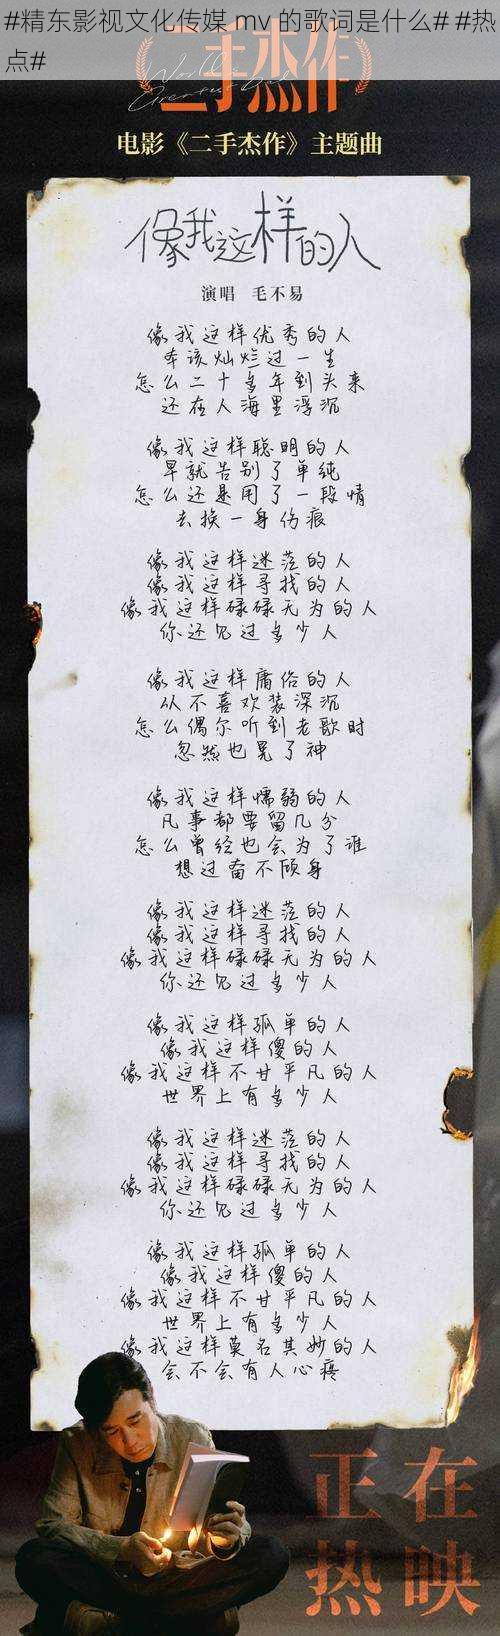 #精东影视文化传媒 mv 的歌词是什么# #热
点#
二手杰作
World's
Greatest Best
电影《二手杰作》主题曲
像我这样的人
演唱 毛不易
像我这样优秀的人
本该灿烂过一生
怎么二十多年到头来
还在人海里浮沉
像我这样聪明的人
早就告别了单纯
怎么还是用了一段情
去换一身伤痕
像我这样迷茫的人
像我这样寻找的人
像我这样碌碌无为的人
你还见过多少人
像我这样庸俗的人
从不喜欢装深沉
怎么偶尔听到老歌时
忽然也晃了神
像我这样懦弱的人
凡事都要留几分
怎么曾经也会为了谁
想过奋不顾身
像我这样迷茫的人
像我这样寻找的人
像我这样碌碌无为的人
你还见过多少人
像我这样孤单的人
像我这样傻的人
像我这样不甘平凡的人
世界上有多少人
像我这样迷茫的人
像我这样寻找的人
像我这样碌碌无为的人
你还见过多少人
像我这样孤单的人
像我这样傻的人
像我这样不甘平凡的人
世界上有多少人
像我这样莫名其妙的人
会不会有人心疼
正在
热映